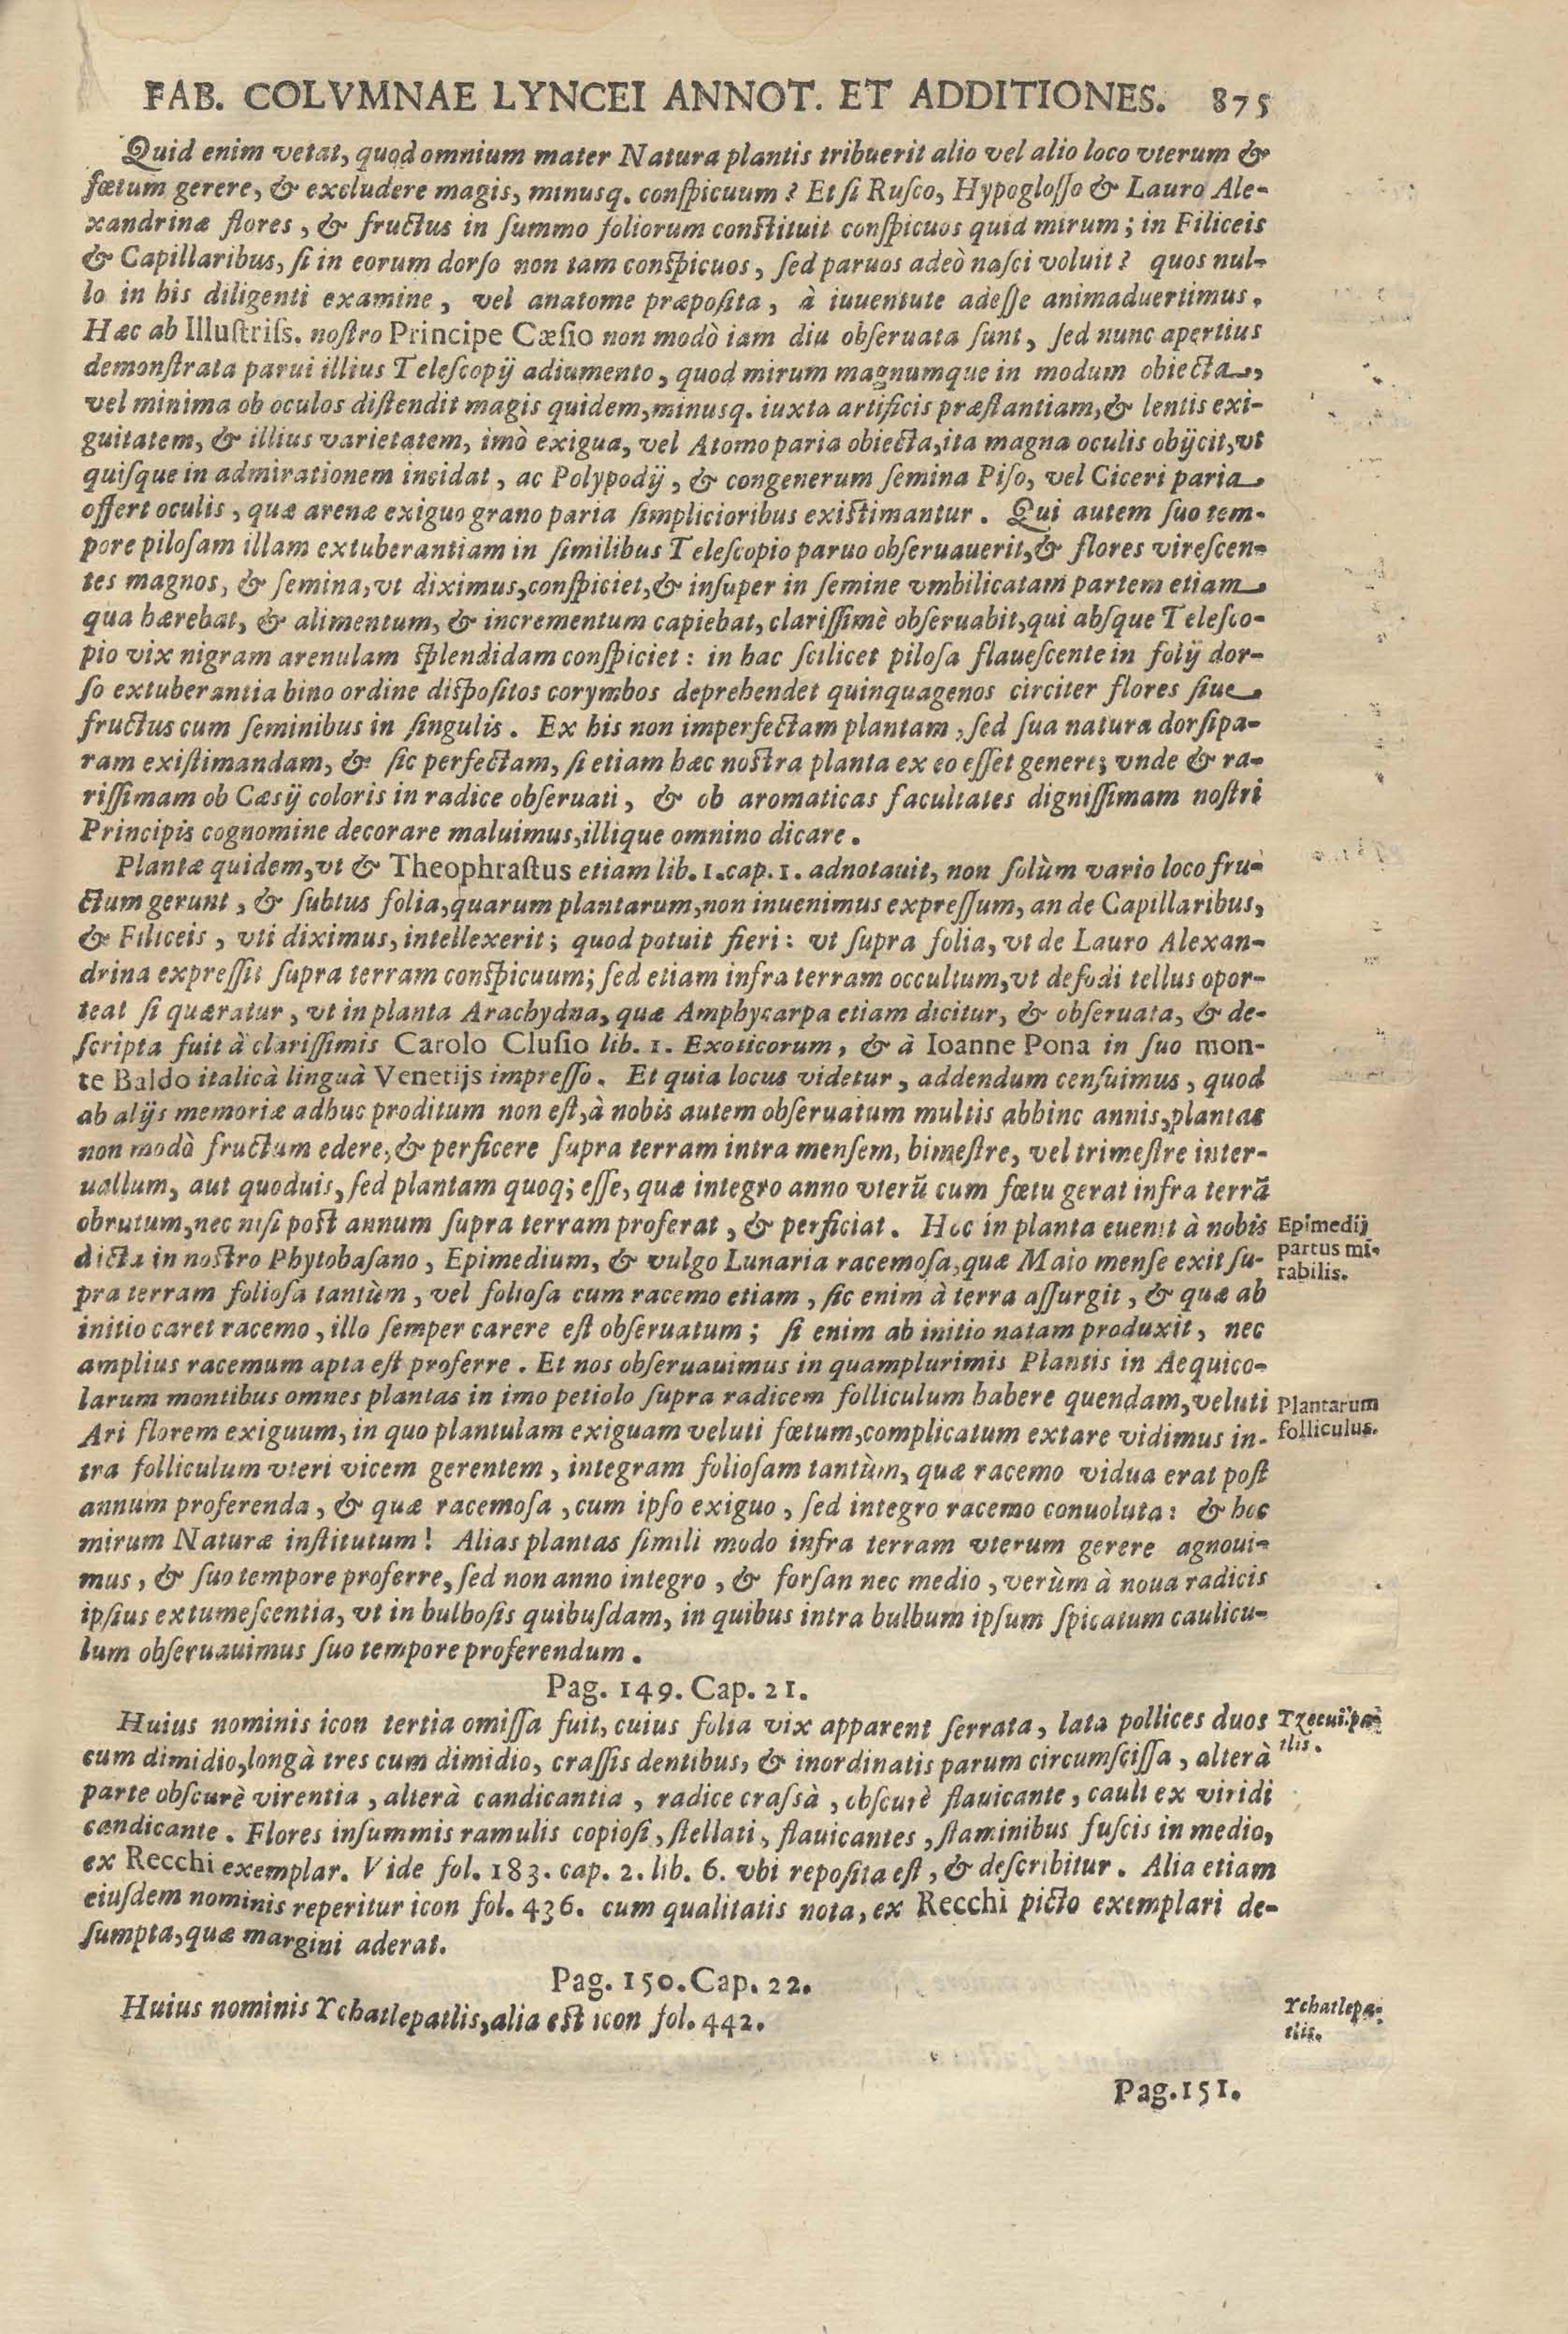 FAB. COLVMNAE LYNCEI ANNOT. ET ADDITIONES. 875
Quid enim vetat, quod omnium mater Natura plantis tribuerit alio vel alio loco vterum &
fœtum gerere, & excludere magis, minusq. conſpicuum? Et ſi Ruſco, Hypogloſſo & Lauro Ale-
xandrinæ flores, & fructus in ſummo foliorum conſtituit conſpicuos quid mirum; in Filiceis
& Capillaribus, ſi in eorum dorſo non tam conſpicuos, ſed paruos adeò naſci voluit? quos nul-
lo in his diligenti examine, vel anatome præpoſita, à iuuentute adeſſe animaduertimus.
Hæc ab Illuſtriſs. noſtro Principe Cæſio non modò iam diu obſeruata ſunt, ſed nunc apertius
demonſtrata parui illius Teleſcopij adiumento, quod mirum magnumque in modum obiecta,
vel minima ob oculos diſtendit magis quidem, minusq. iuxta artificis præſtantiam, & lentis exi-
guitatem, & illius varietatem, imò exigua, vel Atomo paria obiecta, ita magna oculis obijcit, vt
quiſque in admirationem incidat, ac Polypodij, & congenerum ſemina Piſo, vel Ciceri paria
offert oculis, quæ arenæ exiguo grano paria ſimplicioribus exiſtimantur. Qui autem ſuo tem-
pore piloſam illam extuberantiam in ſimilibus Teleſcopio paruo obſeruauerit, & flores vireſcen-
tes magnos, & ſemina, vt diximus, conſpiciet, & inſuper in ſemine vmbilicatam partem etiam
qua hærebat, & alimentum, & incrementum capiebat, clariſſimè obſeruabit, qui abſque Teleſco-
pio vix nigram arenulam ſplendidam conſpiciet: in hac ſcilicet piloſa flaueſcente in folij dor-
ſo extuberantia bino ordine diſpoſitos corymbos deprehendet quinquagenos circiter flores ſiue
fructus cum ſeminibus in ſingulis. Ex his non imperfectam plantam, ſed ſua natura dorſipa-
ram exiſtimandam, & ſic perfectam, ſi etiam hæc noſtra planta ex eo eſſet genere; vnde & ra-
riſſimam ob Cæſij coloris in radice obſeruati, & ob aromaticas facultates digniſſimam noſtri
Principis cognomine decorare maluimus, illique omnino dicare.
Plantæ quidem, vt & Theophraſtus etiam lib. 1. cap. 1. adnotauit, non ſolùm vario loco fru-
ctum gerunt, & ſubtus folia, quarum plantarum, non inuenimus expreſſum, an de Capillaribus,
& Filiceis, vti diximus, intellexerit; quod potuit fieri: vt ſupra folia, vt de Lauro Alexan-
drina expreſſit ſupra terram conſpicuum; ſed etiam infra terram occultum, vt defodi tellus opor-
teat ſi quæratur, vt in planta Arachydna, quæ Amphycarpa etiam dicitur, & obſeruata, & de-
ſcripta fuit à clariſſimis Carolo Cluſio lib. 1. Exoticorum, & à Ioanne Pona in ſuo mon-
te Baldo italicà linguà Venetijs impreſſo. Et quia locus videtur, addendum cenſuimus, quod
ab alijs memoriæ adhuc proditum non eſt, à nobis autem obſeruatum multis abhinc annis, plantas
non modò fructum edere, & perficere ſupra terram intra menſem, bimeſtre, vel trimeſtre inter-
uallum, aut quoduis, ſed plantam quoq; eſſe, quæ integro anno vterū cum fœtu gerat infra terrā
obrutum, nec niſi poſt annum ſupra terram proferat, & perficiat. Hoc in planta euenit à nobis
Epimedij
partus mi-
rabilis.
dicta in noſtro Phytobaſano, Epimedium, & vulgo Lunaria racemoſa, quæ Maio menſe exit ſu-
pra terram folioſa tantùm, vel folioſa cum racemo etiam, ſic enim à terra aſſurgit, & quæ ab
initio caret racemo, illo ſemper carere eſt obſeruatum; ſi enim ab initio natam produxit, nec
amplius racemum apta eſt proferre. Et nos obſeruauimus in quamplurimis Plantis in Aequico-
larum montibus omnes plantas in imo petiolo ſupra radicem folliculum habere quendam, veluti
Plantarum
folliculus.
Ari florem exiguum, in quo plantulam exiguam veluti fœtum, complicatum extare vidimus in-
tra folliculum vteri vicem gerentem, integram folioſam tantùm, quæ racemo vidua erat poſt
annum proferenda, & quæ racemoſa, cum ipſo exiguo, ſed integro racemo conuoluta: & hoc
mirum Naturæ inſtitutum! Alias plantas ſimili modo infra terram vterum gerere agnoui-
mus, & ſuo tempore proferre, ſed non anno integro, & forſan nec medio, verùm à noua radicis
ipſius extumeſcentia, vt in bulboſis quibuſdam, in quibus intra bulbum ipſum ſpicatum caulicu-
lum obſeruauimus ſuo tempore proferendum.
Pag. 149. Cap. 21.
Huius nominis icon tertia omiſſa fuit, cuius folia vix apparent ſerrata, lata pollices duos
cum dimidio, longà tres cum dimidio, craſſis dentibus, & inordinatis parum circumſciſſa, alterà
parte obſcurè virentia, alterà candicantia, radice craſsà, obſcurè flauicante, cauli ex viridi
candicante. Flores inſummis ramulis copioſi, ſtellati, flauicantes, ſtaminibus fuſcis in medio,
ex Recchi exemplar. Vide fol. 183. cap. 2. lib. 6. vbi repoſita eſt, & deſcribitur. Alia etiam
eiuſdem nominis reperitur icon fol. 436. cum qualitatis nota, ex Recchi picto exemplari de-
ſumpta, quæ margini aderat.
Pag. 150. Cap. 22.
Huius nominis Ychatlepatlis, alia eſt icon fol. 442.
Ychatlepa-
tlis.
Pag. 151.